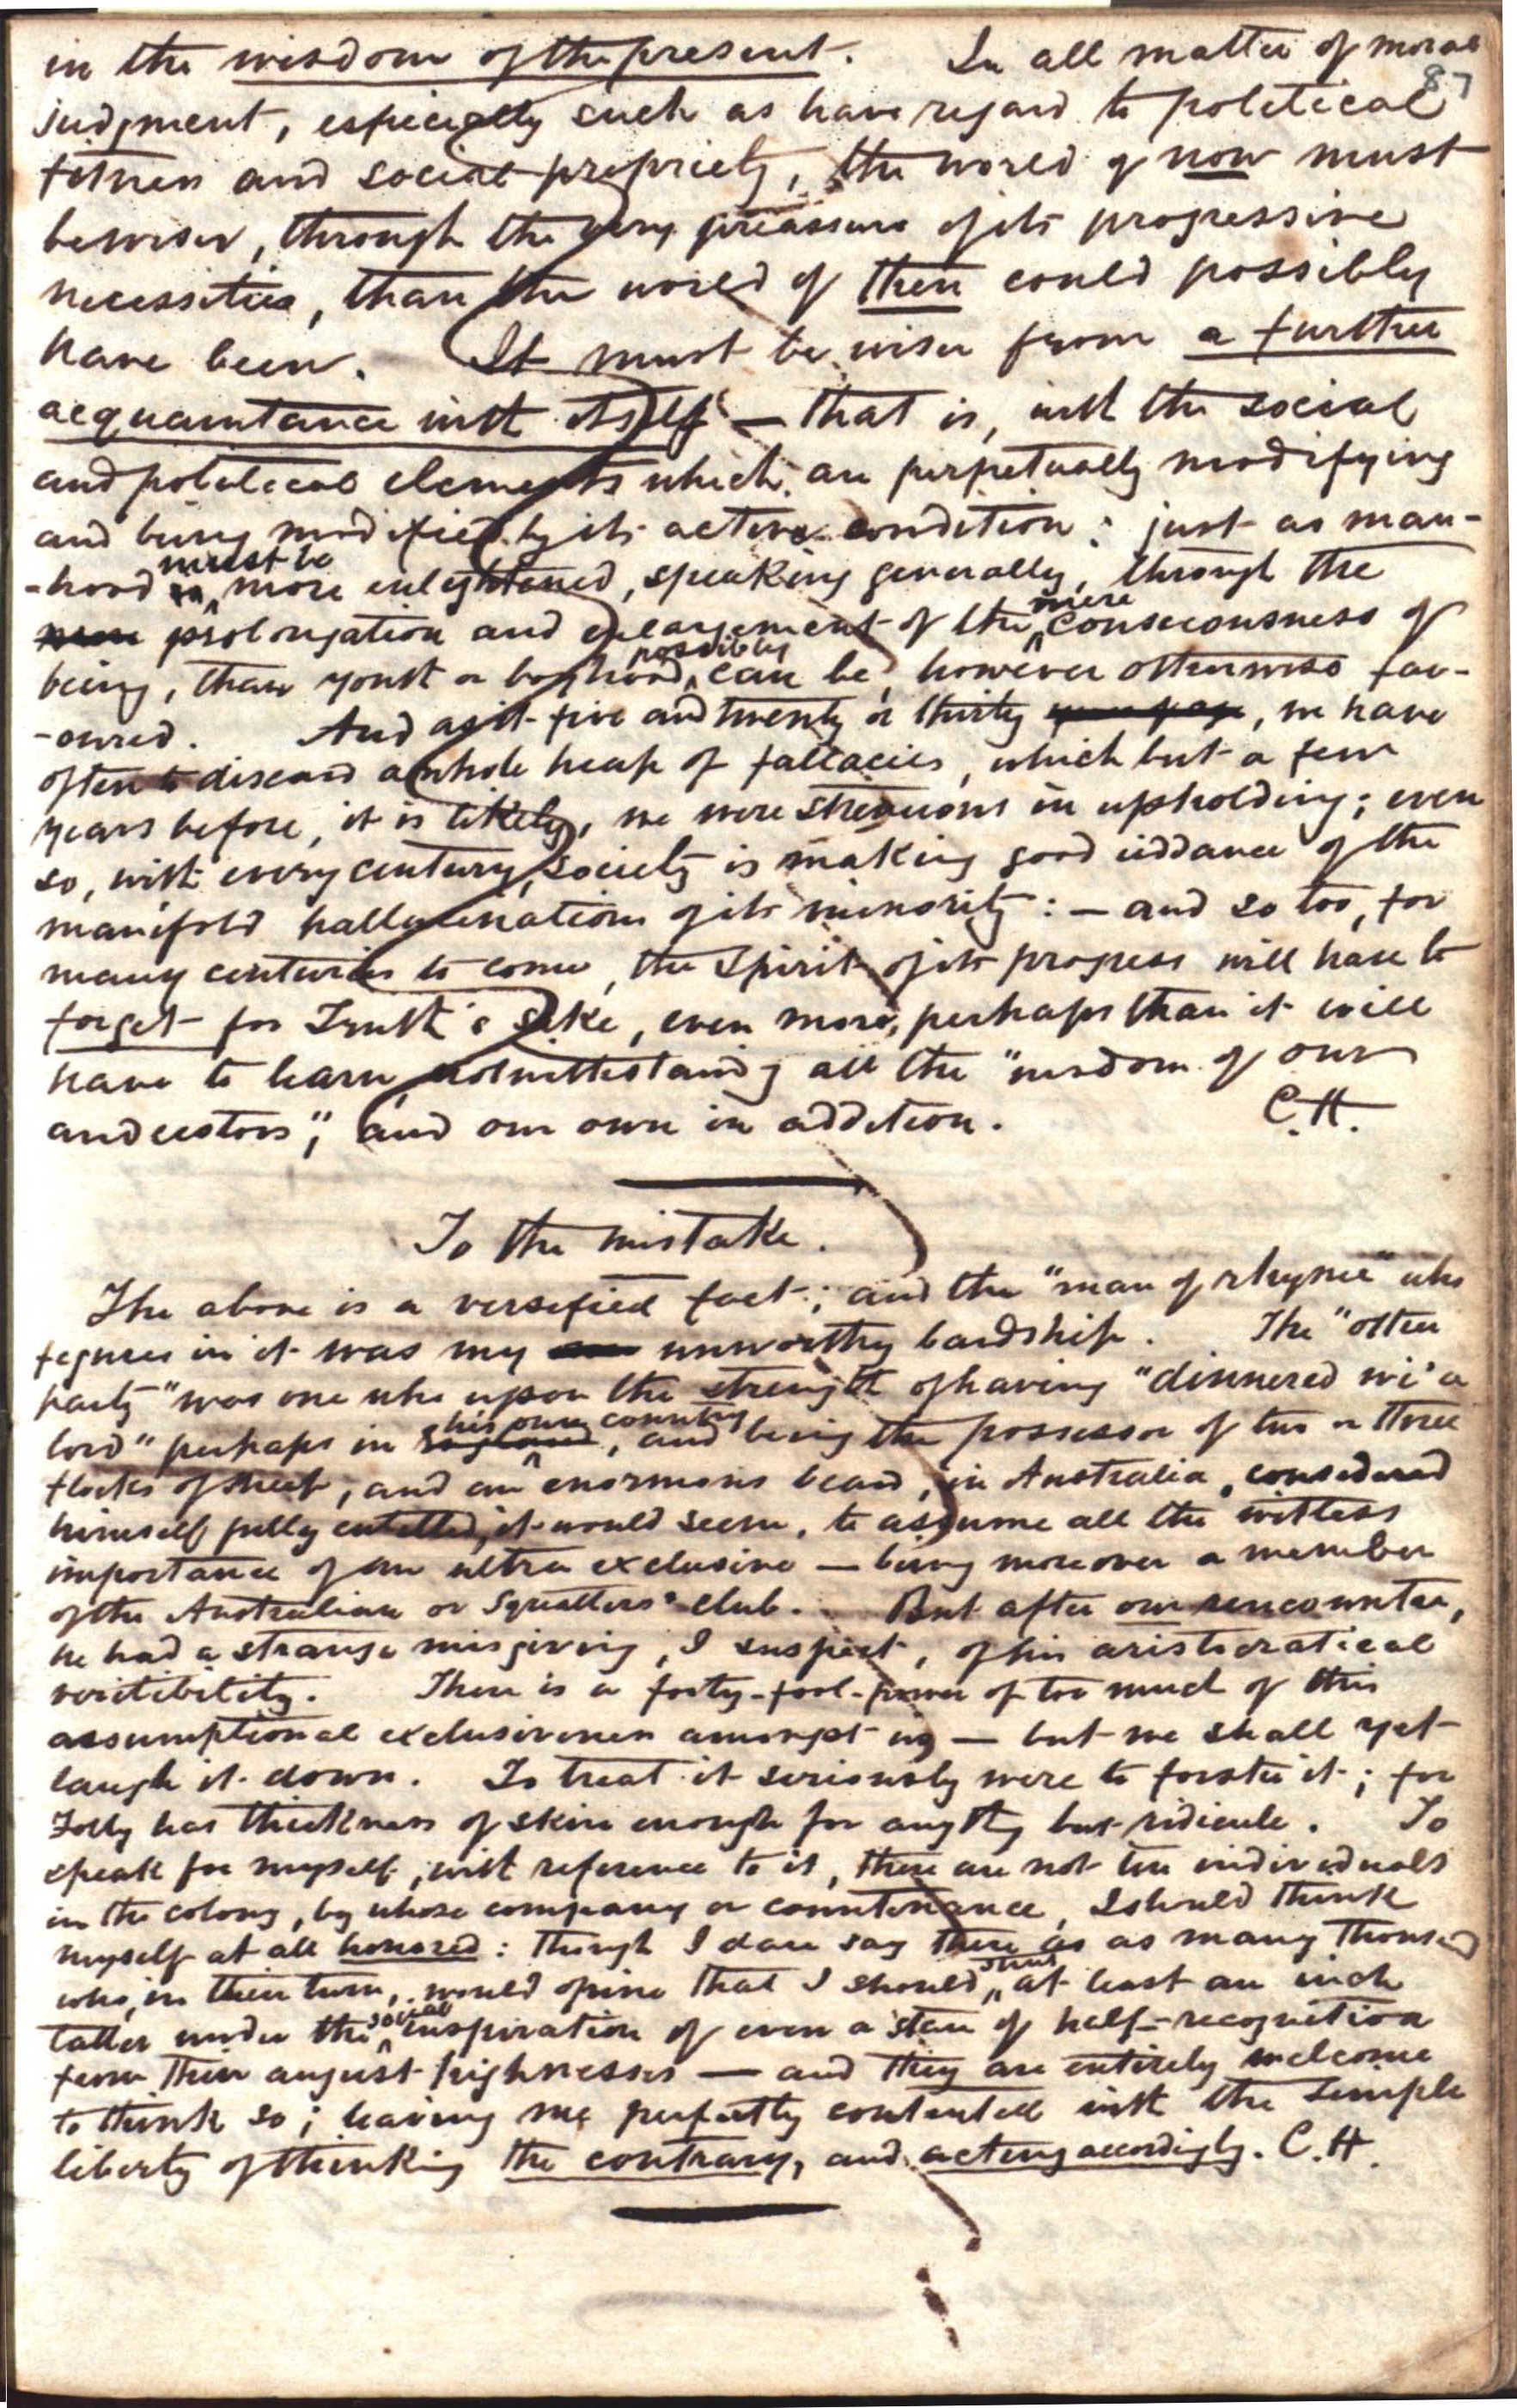 in the wisdom of the present. In all matter of moral
87
judgment, especially such as have regard to political
fitness and social propriety, the world of now must
be wiser, through the very preassure of its progressive
necessities, than the world of then could possibly
have been. It must be wiser from a further
acquaintance with itself — that is, with the social
and political elements which are perpetually modifying
and being modified by its active condition: just as man-
-hood must be more enlightened, speaking generally, through the
prolongation and enlargement of the mere consciousness of
being, than youth or boyhood possibly can be, however otherwise fav-
-oured. And as at five and twenty or thirty, we have
often to discard a whole heap of fallacies, which but a few
years before, it is likely, we were strenuous in upholding; even
so, with every century, society is making good riddance of the
manifold hallucinations of its minority: — and so too, for
many centuries to come, the spirit of its progress will have to
forget for Truth's sake, even more, perhaps than it will
have to learn, notwithstanding all the "wisdom of our
ancestors", and our own in addition. C.H.
To the mistake.
The above is a versified fact; and the "man of rhyme" who
figures in it was my unworthy bardship. The "other
party" was one who upon the strength of having "dinnered wi' a
lord" perhaps in his own country, and being the possessor of two or three
flocks of sheep, and an enormous beard, in Australia, considered
himself fully entitled, it would seem, to assume all the witless
importance of an ultra exclusive — being moreover a member
of the Australian or Squatters' club. But after our rencounter,
he had a strange misgiving, I suspect, of his aristocratical
There is a forty-fool-power of too much of this
assumptional exclusiveness amongst us — but we shall yet
laugh it down. To treat it seriously were to forster it; for
Folly has thickness of skin enough for anything but ridicule. To
speak for myself, with reference to it, there are not ten individuals
in the colony, by whose company or countenance, I should think
myself at all honored: though I dare say there is as many thousand
who, in their turn, would opine that I should strut at least an inch
taller under the social inspiration of even a stare of half-recognition
from their august highnesses — and they are entirely welcome
to think so; leaving me perfectly contented with the simple
liberty of thinking the contrary, and acting accordingly. C.H.